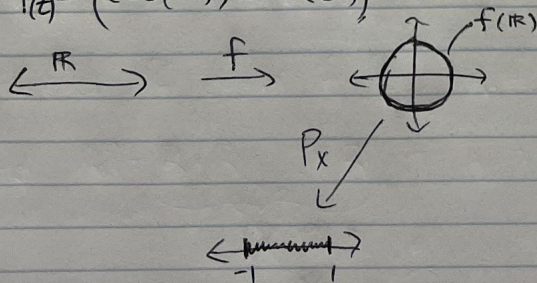 ℝ f f(ℝ)
Pₓ
-1 1